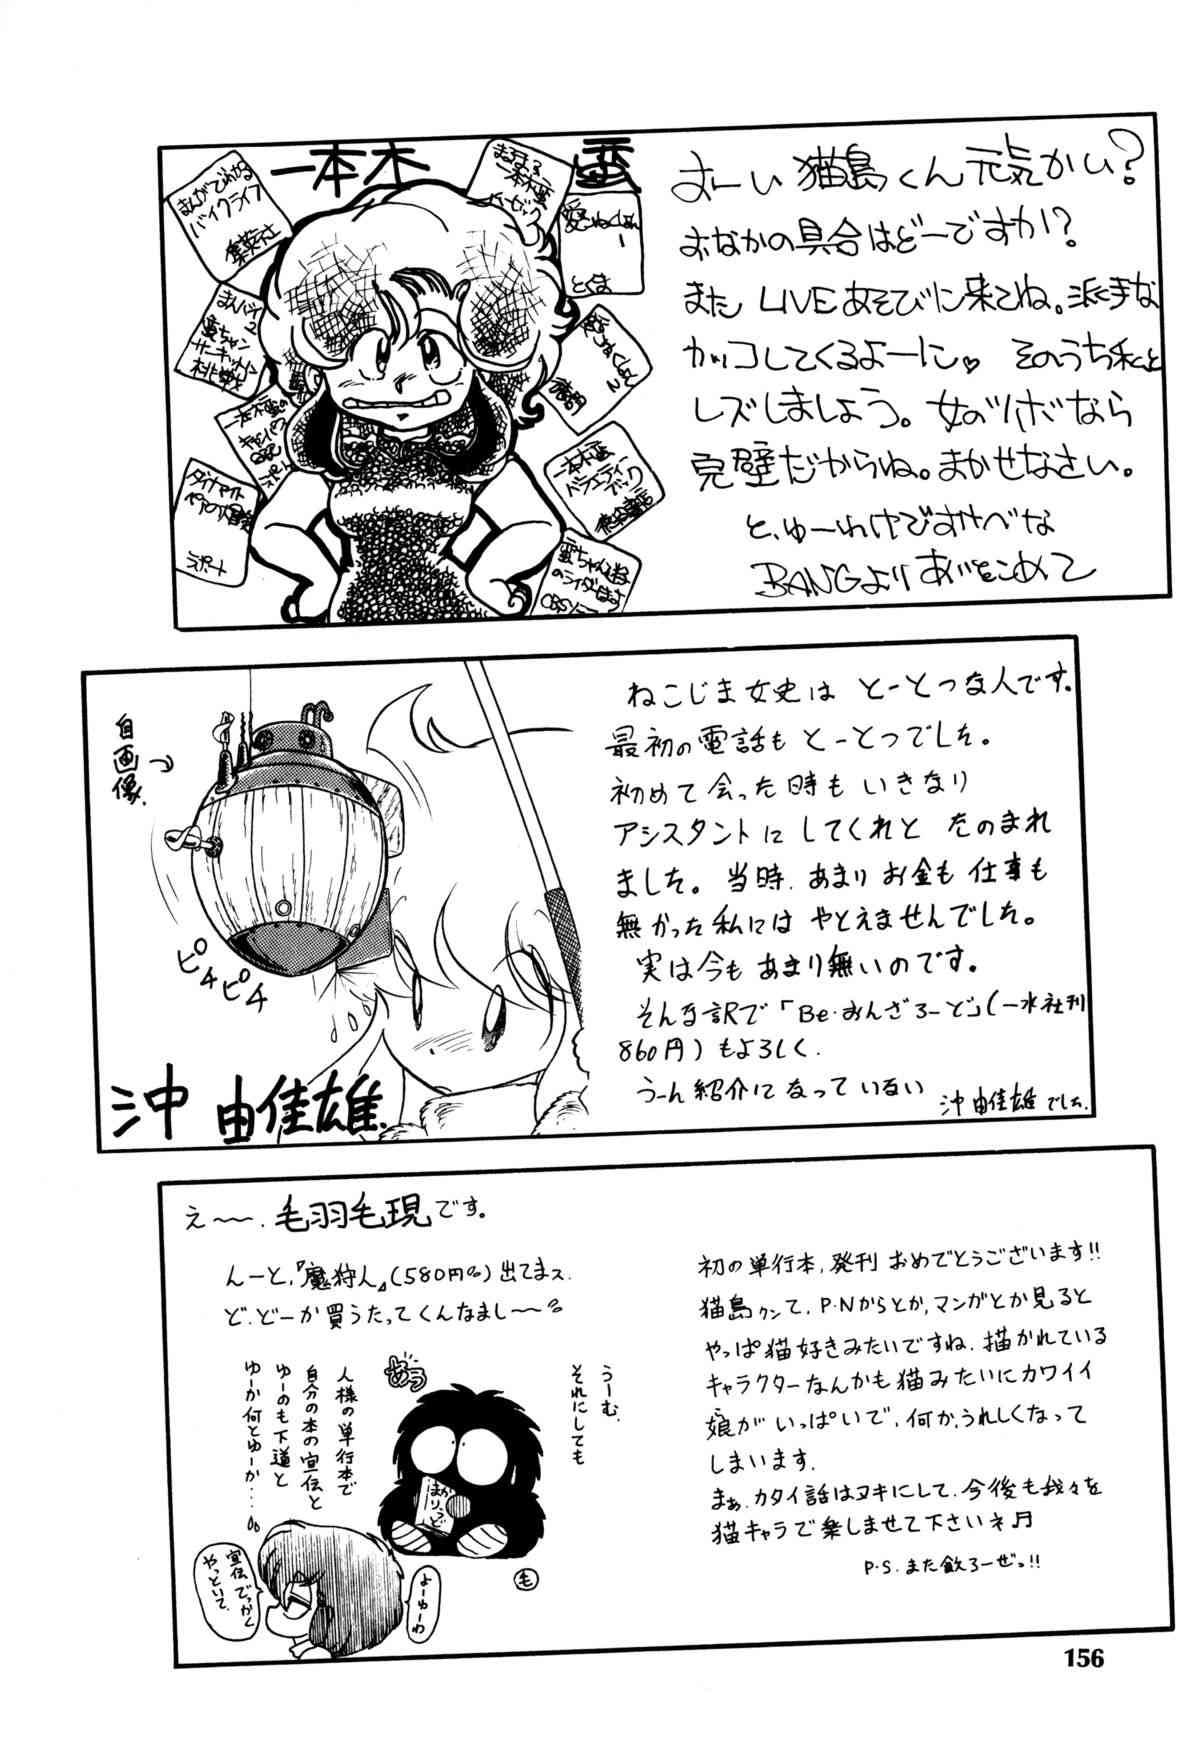 一本木 蛮
まんがでわかる
バイクライフ
集英社
まるまる
一本木蛮
愛しのくりぃむ
とくま
まんバイ
2
蛮ちゃん
サーキット
一本木蛮の
キャンパス
日記
ダイナマイト
ペアの大冒険
ラポート
一本木蛮
バラエティー
ブック
おーい 猫島くん元気かい?
おなかの具合はどーですか!?
また LIVEあそびに来てね。派手な
カッコしてくるよーに♥ そのうち私と
レズしましょう。女のツボなら
完璧だからね。まかせなさい。
と、ゆーわけですけべな
BANGより あいをこめて
自画像
ピチ
ピチ
沖 由佳雄.
ねこじま女史は とーとつな人です。
最初の電話も とーとつでした。
初めて会った時も いきなり
アシスタントにしてくれと たのまれ
ました。当時、あまりお金も仕事も
無かった私には やとえませんでした。
実は今も あまり無いのです。
そんな訳で「Be・おんざろーど」(一水社刊
860円)もよろしく.
うーん紹介になっていない
沖 由佳雄でした.
え〜〜. 毛羽毛現です。
んーと,『魔狩人』(580円)出てまス.
ど、どーか買うたってくんなまし〜〜
うーむ、
それにしても
あう
人様の単行本で
自分の本の宣伝と
ゆーのも下道と
ゆーか何とゆーか・・・・
まかりうど
毛
よーゆーわ
宣伝でっかく
やっといて、
初の単行本, 発刊 おめでとうございます!!
猫島クンて, P・Nからとか, マンガとか見ると
やっぱ猫好きみたいですね. 描かれている
キャラクターなんかも猫みたいにカワイイ
娘がいっぱいで, 何か,うれしくなって
しまいます.
まぁ, カタイ話はヌキにして, 今後も我々を
猫キャラで楽しませて下さいネ♬
P・S. また飲ろーぜっ!!
156